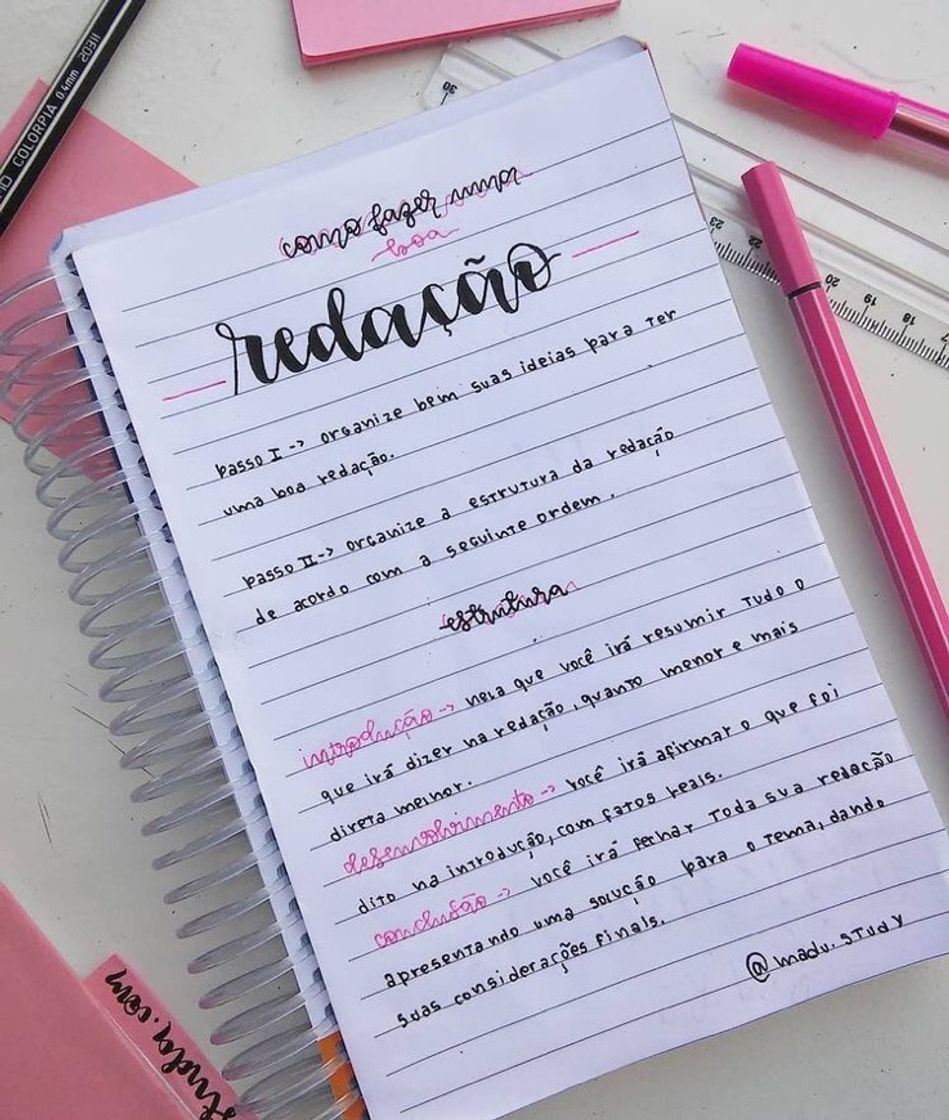 COLORPIA 0.4mm 203H
30
como fazer uma
boa
redação
passo I -> organize bem suas ideias para ter
uma boa redação.
passo II -> organize a estrutura da redação
de acordo com a seguinte ordem.
estrutura
introdução -> nela que você irá resumir tudo o
que irá dizer na redação, quanto menor e mais
direta melhor.
desenvolvimento -> você irá afirmar o que foi
dito na introdução, com fatos reais.
conclusão -> você irá fechar toda sua redação
apresentando uma solução para o tema, dando
suas considerações finais.
@madu.study
23
22
20
19
18